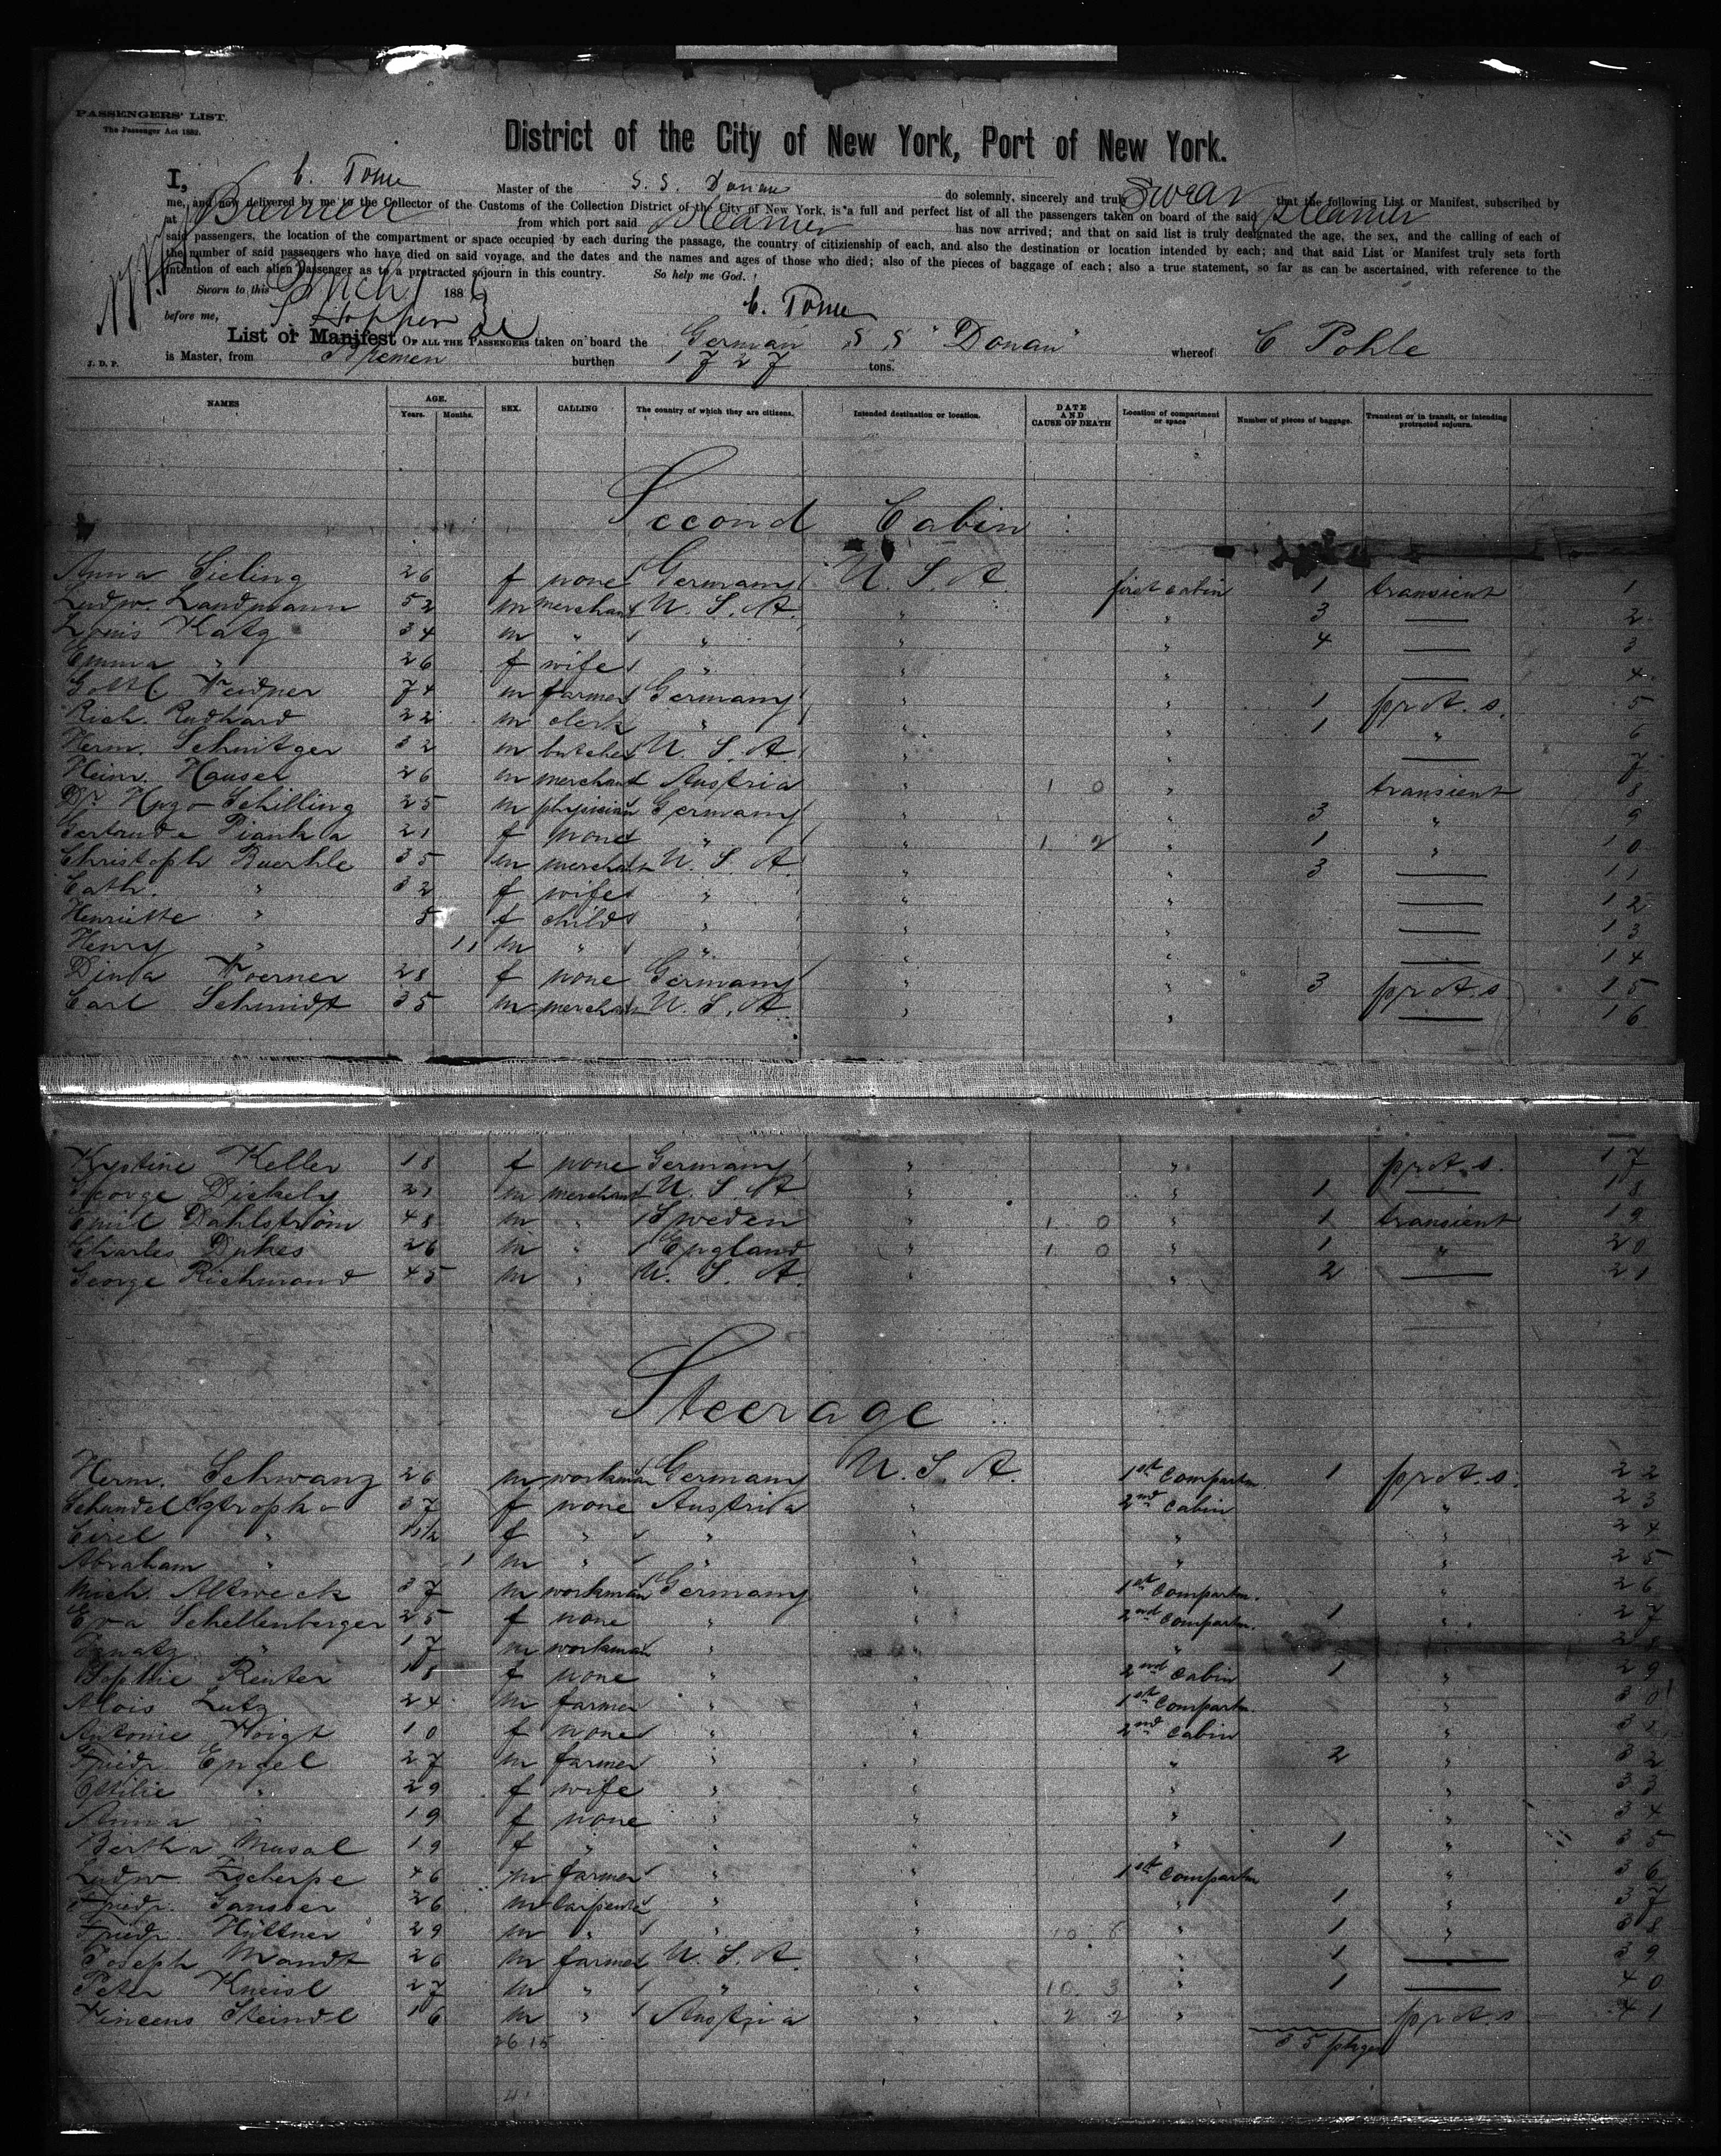 PASSENGERS' LIST.
The Passenger Act 1882.
District of the City of New York, Port of New York.
I, Master of the S. S. Donau do solemnly, sincerely and truly swear that the following List or Manifest, subscribed by
me, and now delivered by me to the Collector of the Customs of the Collection District of the City of New York, is a full and perfect list of all the passengers taken on board of the said Steamer
at Bremen from which port said Steamer has now arrived; and that on said list is truly designated the age, the sex, and the calling of each of
said passengers, the location of the compartment or space occupied by each during the passage, the country of citizenship of each, and also the destination or location intended by each; and that said List or Manifest truly sets forth
the number of said passengers who have died on said voyage, and the dates and the names and ages of those who died; also of the pieces of baggage of each; also a true statement, so far as can be ascertained, with reference to the
intention of each alien passenger as to a protracted sojourn in this country. So help me God.
Sworn to this 1886
before me,
List or Manifest OF ALL THE PASSENGERS taken on board the German S S "Donau" whereof C Pohle
is Master, from Bremen burthen 1727 tons.
J. D. P.
NAMES AGE. Years. Months. SEX. CALLING The country of which they are citizens. Intended destination or location. DATE AND CAUSE OF DEATH Location of compartment or space Number of pieces of baggage. Transient or in transit, or intending protracted sojourn.
Second Cabin
Anna Sieling 26 f none Germany U. S. A first cabin 1 transient 1
Ludw. Landmann 52 m merchant U. S. A. " " 3 — 2
Louis Katz 34 m " " " " 4 — 3
Emma " 26 f wife " " " — 4
Gottl Weidner 74 m farmer Germany " " 1 prot. s. 5
Rich. Rudhard 22 m clerk " " " 1 " 6
Herm. Schnitger 32 m butcher U. S. A. " " — 7
Heinr. Hauser 26 m merchant Austria " 10 " transient 8
Dr. Hugo Schilling 25 m physician Germany " " 3 " 9
Gertrude Pianka 21 f none " " 12 " 1 " 10
Christoph Ruerhle 35 m merchant U. S. A. " " 3 — 11
Cath. " 32 f wife " " " — 12
Henriette " 5 f child " " " — 13
Henry " 11 m " " " " — 14
Dina Woerner 28 f none Germany " " 3 prot. s 15
Carl Schmidt 35 m merchant U. S. A. " " — 16
Kystine Keller 18 f none Germany " " prot. s. 17
George Dickely 21 m merchant U. S. A " " 1 — 18
Emil Dahlström 48 m " Sweden " 10 " 1 transient 19
Charles Dukes 26 m " England " 10 " 1 " 20
George Richmond 45 m " U. S. A. " " 2 — 21
Steerage
Herm. Schwanz 26 m workman Germany U. S. A. 1st Compartm. 1 prot. s. 22
Schundel 37 f none Austria " 2nd Cabin " 23
Cirel " 11/2 f " " " " " 24
Abraham " 1 m " " " " " 25
Mich. Altweck 37 m workman Germany " 1st Compartm. " 26
Eva Schellenberger 25 f none " " 2nd Compartm. 1 " 27
Ignatz " 17 m workman " " " " 28
Sophie Reuter 18 f none " " 2nd Cabin 1 " 29
Alois Lutz 24 m farmer " " 1st Compartm " 30
Antonie Voigt 10 f none " " 2nd Cabin " 31
Friedr. Engel 27 m farmer " " " 2 " 32
Ottilie " 29 f wife " " " " 33
Anna " 19 f none " " " " 34
Bertha Musal 19 f " " " " 1 " 35
Ludw Zscherpe 46 m farmer " " 1st Compartm " 36
Friedr. Gansser 26 m Carpenter " " " 1 " 37
Friedr. Hüttner 29 m " " " 10 6 " 1 " 38
Joseph Wandt 26 m farmer U. S. A. " " 1 — 39
Peter Kneisl 27 m " " " 10 3 " 1 — 40
Vincens Steindl 16 m " Austria " 2 2 " prot. s 41
26 15 35 pkges